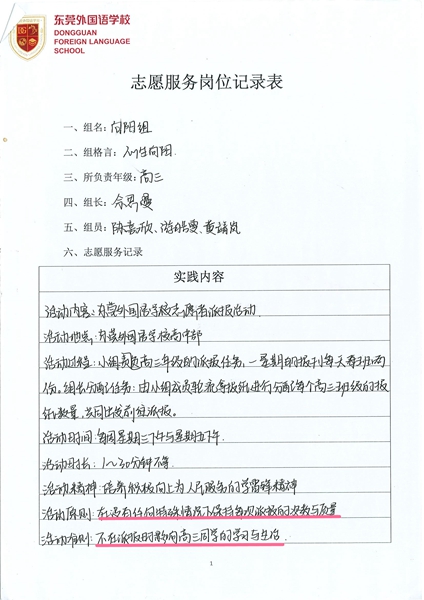 东莞外国语学校
DONGGUAN
FOREIGN LANGUAGE
SCHOOL
志愿服务岗位记录表
一、组名：向阳组
二、组格言：人生向阳.
三、所负责年级：高三
四、组长：余思曼
五、组员：陈嘉欣、游皓雯、黄靖岚
六、志愿服务记录
实践内容
活动内容：东莞外国语学校志愿者派报活动.
活动地点：东莞外国语学校高中部
活动过程：小组负责高三年级的派报任务，一星期的报刊每天每班两
份。组长分配任务：由小组成员轮流对报纸进行分配每个高三班级的报
纸数量，共同出发前往派报。
活动时间：每周星期三下午与星期五下午.
活动时长：1~30分钟不等.
活动精神：培养积极向上为人民服务的学雷锋精神
活动原则：在没有任何特殊情况下保持每次派报的次数与质量
活动准则：不在派报时影响高三同学的学习与生活.
1